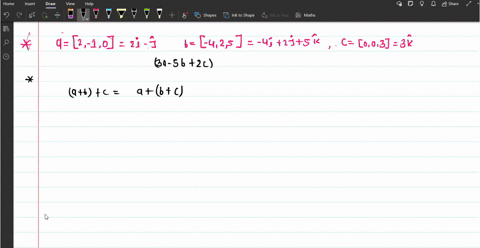 File Home Insert Draw View Help
Shapes Ink to Shape Ink to Math
* a = [2, -1, 0] = 2ĵ - ĵ b = [-4, 2, 5] = -4ĵ + 2ĵ + 5k̂ , c = [0, 0, 3] = 3k̂
(3a - 5b + 2c)
*
(a+b) + c = a + (b + c)